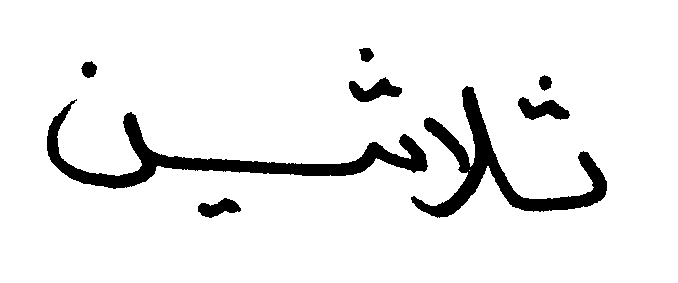 ثلاثين